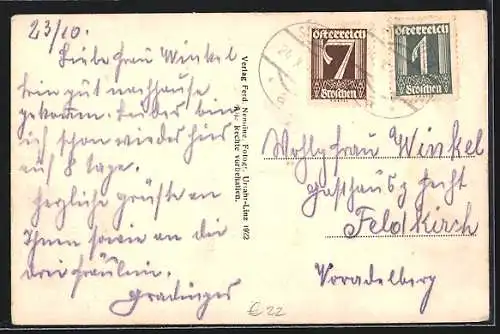 23/10.
Liebe Frau Winkel
bin gut nachhause
gekommen. Leider bin
ich schon wieder hier
auf 8 Tage.
Herzliche Grüsse an
Ihnen sowie an die
drei Fräulein.
Gradinger
Verlag Ferd. Nemöhr, Fotogr., Urfahr-Linz 1922
Alle Rechte vorbehalten.
Österreich
7
Groschen
Österreich
1
Groschen
Wohlg Frau Winkel
Gasthaus z Hecht
Feldkirch
Voradelberg
€ 22